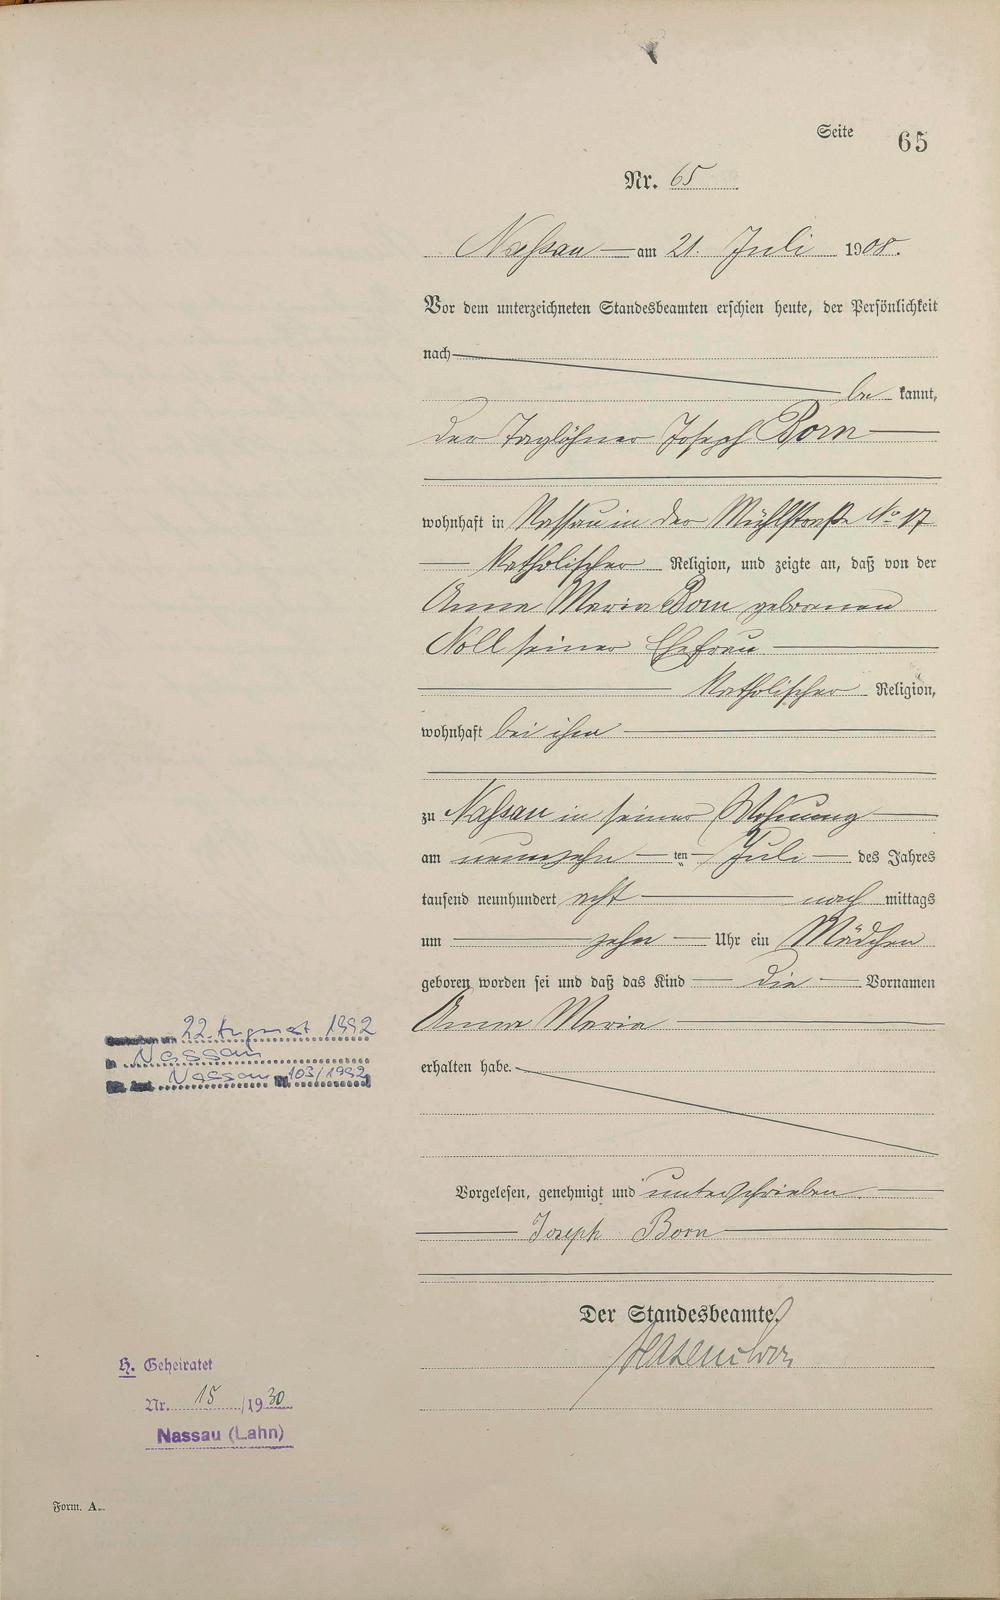 Seite 65
Nr. 65
Nassau am 21. Juli 1908.
Vor dem unterzeichneten Standesbeamten erschien heute, der Persönlichkeit
nach
be kannt,
der Taglöhner Joseph Born
wohnhaft in Nassau in der Mühlstraße No 17
katholischer Religion, und zeigte an, daß von der
Anna Maria Born geborenen
Noll seiner Ehefrau
katholischer Religion,
wohnhaft bei ihm
zu Nassau in seiner Wohnung
am neunzehn ten Juli des Jahres
tausend neunhundert acht nach mittags
um zehn Uhr ein Mädchen
geboren worden sei und daß das Kind die Vornamen
Anna Maria
erhalten habe.
Vorgelesen, genehmigt und unterschrieben.
Joseph Born
Der Standesbeamte.
Gestorben am 22. August 1992
in Nassau
Nassau Nr. 103/1992
H. Geheiratet
Nr. 15/1930
Nassau (Lahn)
Form. A.